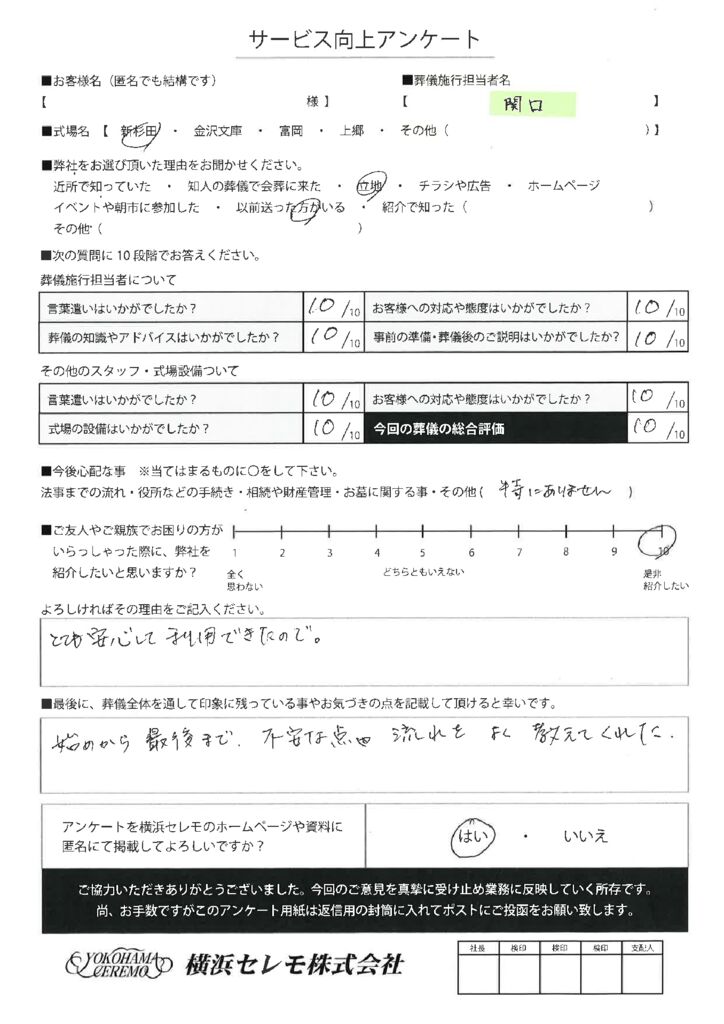 サービス向上アンケート
■お客様名（匿名でも結構です） ■葬儀施行担当者名
【 様 】 【 関口 】
■式場名 【 新杉田 ・ 金沢文庫 ・ 富岡 ・ 上郷 ・ その他（ ）】
■弊社をお選び頂いた理由をお聞かせください。
近所で知っていた ・ 知人の葬儀で会葬に来た ・ 立地 ・ チラシや広告 ・ ホームページ
イベントや朝市に参加した ・ 以前送った方がいる ・ 紹介で知った（ ）
その他（ ）
■次の質問に 10 段階でお答えください。
葬儀施行担当者について
言葉遣いはいかがでしたか？ 10 /10 お客様への対応や態度はいかがでしたか？ 10 /10
葬儀の知識やアドバイスはいかがでしたか？ 10 /10 事前の準備・葬儀後のご説明はいかがでしたか？ 10 /10
その他のスタッフ・式場設備ついて
言葉遣いはいかがでしたか？ 10 /10 お客様への対応や態度はいかがでしたか？ 10 /10
式場の設備はいかがでしたか？ 10 /10 今回の葬儀の総合評価 10 /10
■今後心配な事 ※当てはまるものに〇をして下さい。
法事までの流れ・役所などの手続き・相続や財産管理・お墓に関する事・その他（ 特にありません ）
■ご友人やご親族でお困りの方が
いらっしゃった際に、弊社を 1 2 3 4 5 6 7 8 9 10
紹介したいと思いますか？ 全く思わない どちらともいえない 是非紹介したい
よろしければその理由をご記入ください。
とても安心して利用できたので。
■最後に、葬儀全体を通して印象に残っている事やお気づきの点を記載して頂けると幸いです。
始めから最後まで、不安な点や流れをよく教えてくれた.
アンケートを横浜セレモのホームページや資料に
匿名にて掲載してよろしいですか？ はい ・ いいえ
ご協力いただきありがとうございました。今回のご意見を真摯に受け止め業務に反映していく所存です。
尚、お手数ですがこのアンケート用紙は返信用の封筒に入れてポストにご投函をお願い致します。
YOKOHAMA CEREMO 横浜セレモ株式会社
社長 検印 検印 検印 支配人